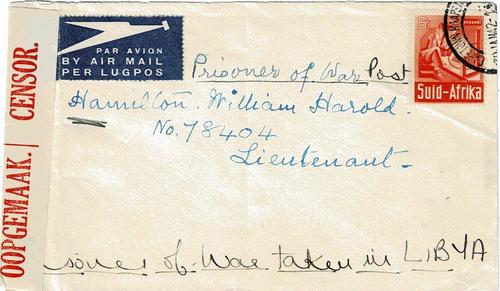 OOPGEMAAK. | CENSOR.
PAR AVION
BY AIR MAIL
PER LUGPOS
Suid-Afrika
Prisoner of War Post
Hamilton. William Harold.
No. 78404
Lieutenant
soner of War taken in LIBYA